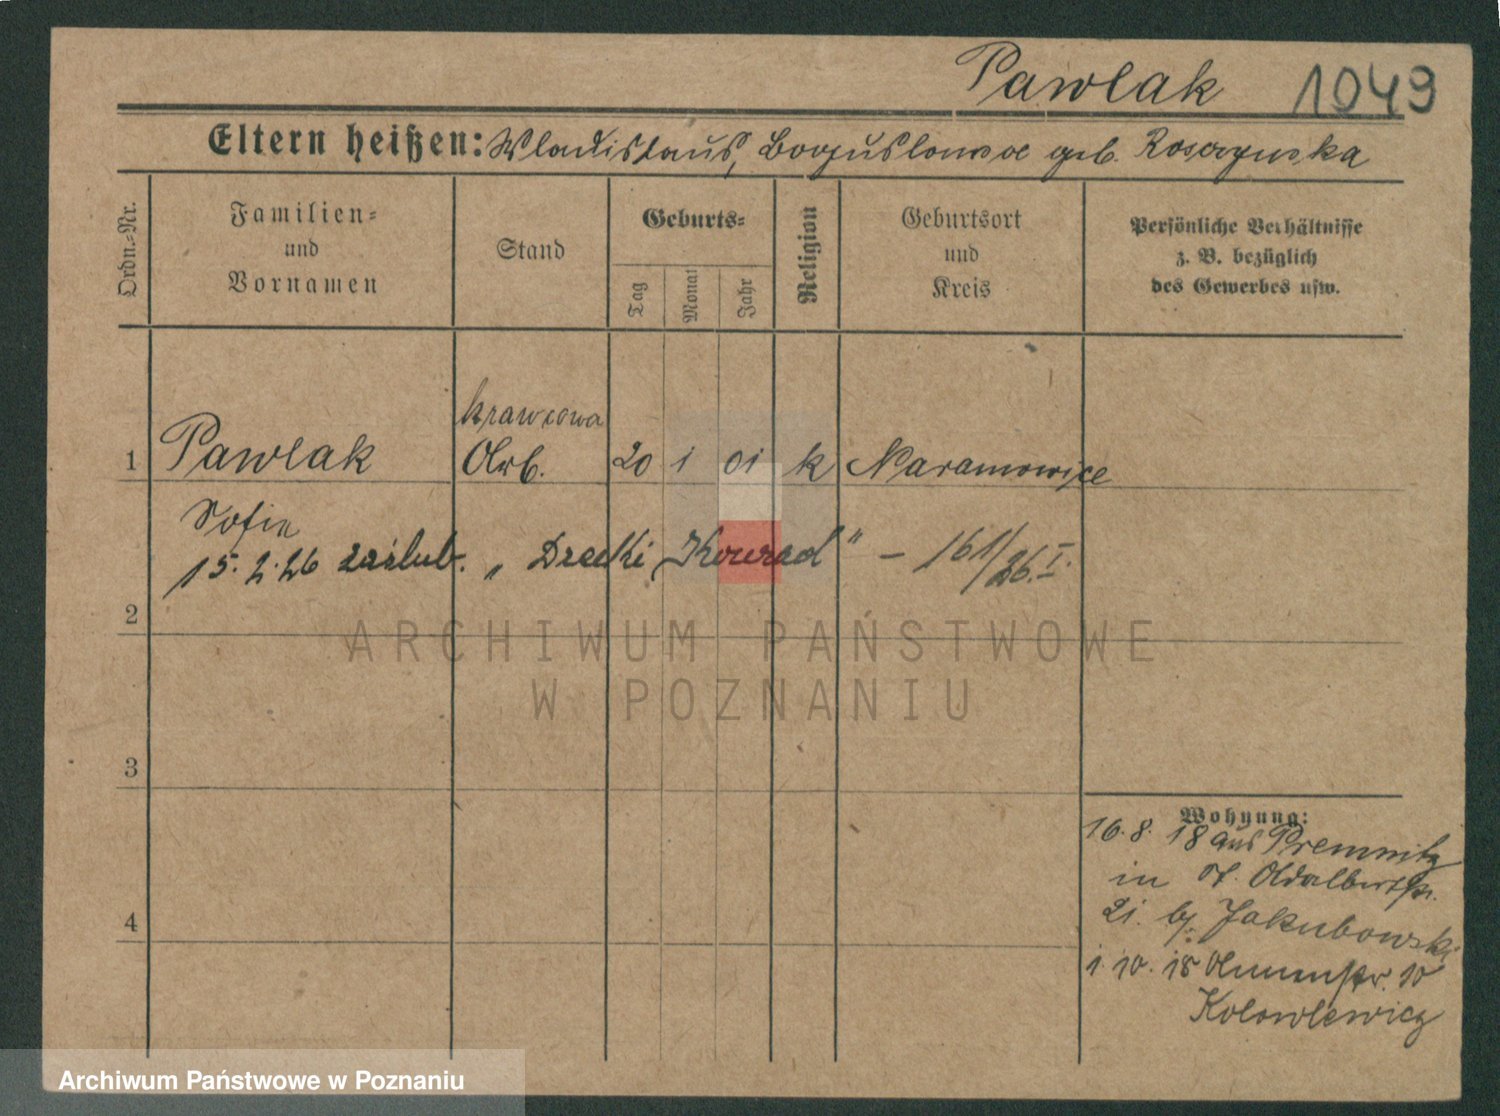 Pawlak 1049
Eltern heißen: Wladislaus, Boguslawa geb.
Ordn.-Nr.
Familien-
und
Vornamen
Stand
Geburts-
Tag
Monat
Jahr
Religion
Geburtsort
und
Kreis
Persönliche Verhältnisse
z. B. bezüglich
des Gewerbes usw.
krawcowa
1 Pawlak Arb. 20 1 01 k Naramowice
Sofie
15.2.26 zaślub. „Drecki Konrad" – 161/26. I.
2
3
4
Wohnung:
16.8.18 aus Premnitz
in St. Adalbertstr.
21. bj. Jakubowski
1.10.18 10
Kolowlewicz
ARCHIWUM PAŃSTWOWE
W POZNANIU
Archiwum Państwowe w Poznaniu